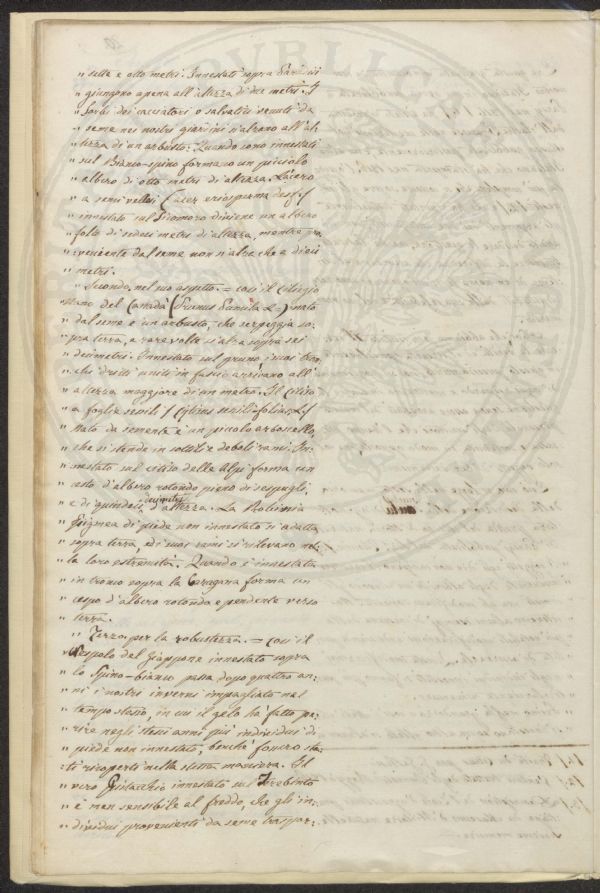 " sette e otto metri. Innestati sopra
" giungono apena all'altezza di due metri. I
" Sorbi dei cacciatori o salvatici venuti da
" seme nei nostri giardini s'alzano all'al-
" tezza di un arbusto: Quando sono innestati
" sul Bianco-spino formano un picciolo
" albero di otto metri di altezza. L'acero
" a semi vellosi (acer eriosperma desf.)
" innestato sul Sicomoro diviene un albero
" folto di sedeci metri di altezza, mentre pro-
" veniente dal seme non s'alza che a dieci
" metri.
" Secondo, nel suo aspetto. = così il Ciliegio
" nano del Canadà (Prunus Pumila L.) nato
" dal seme è un arbusto, che serpeggia so-
" pra terra, e rare volte si alza sopra sei
" decimetri. Innestato sul pruno i suoi bran-
" chi dritti uniti in fascio arrivano all'
" altezza maggiore di un metro. Il Citiso
" a foglie sessili (Cytisus sessilifolius L.)
" nato da semente è un piccolo arboscello,
" che si stende in sottili e deboli rami. In-
" nestato sul citiso delle Alpi forma un
" cesto d'albero rotondo pieno di cespugli,
" e di quindeci decimetri d'altezza. La Robinia
" Pigmea di piede non innestato si adatta
" sopra terra, ed i suoi rami si rilevano nel-
" la loro estremità. Quando è innestata
" in tronco sopra la Caragana forma un
" cespo d'albero rotondo e pendente verso
" terra.
" Terzo, per la robustezza. = così il
" Nespolo del Giappone innestato sopra
" lo Spino-bianco passa dopo quattro an-
" ni i nostri inverni impagliato nel
" tempo stesso, in cui il gelo ha fatto pe-
" rire negli stessi anni più individui di
" piede non innestato, benchè fossero sta-
" ti ricoperti nella stessa maniera. Il
" vero Pistacchio innestato sul Terebinto
" è men sensibile al freddo, che gli in-
" dividui provenienti da seme traspor-